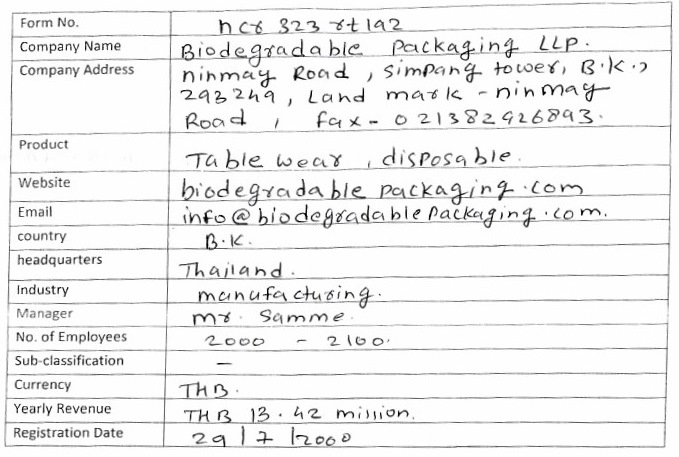 Form No. ncr 323 rt1a2
Company Name Biodegradable Packaging LLP.
Company Address ninmay Road, simpang tower, B.K.,
293249, Land mark - ninmay
Road, fax - 021382926893.
Product Table wear, disposable.
Website biodegradable packaging.com
Email info@biodegradablePackaging.com.
country B.K.
headquarters Thailand.
Industry manufacturing.
Manager mr. Samme.
No. of Employees 2000 - 2100.
Sub-classification —
Currency THB.
Yearly Revenue THB 13.42 million.
Registration Date 29/7/2000